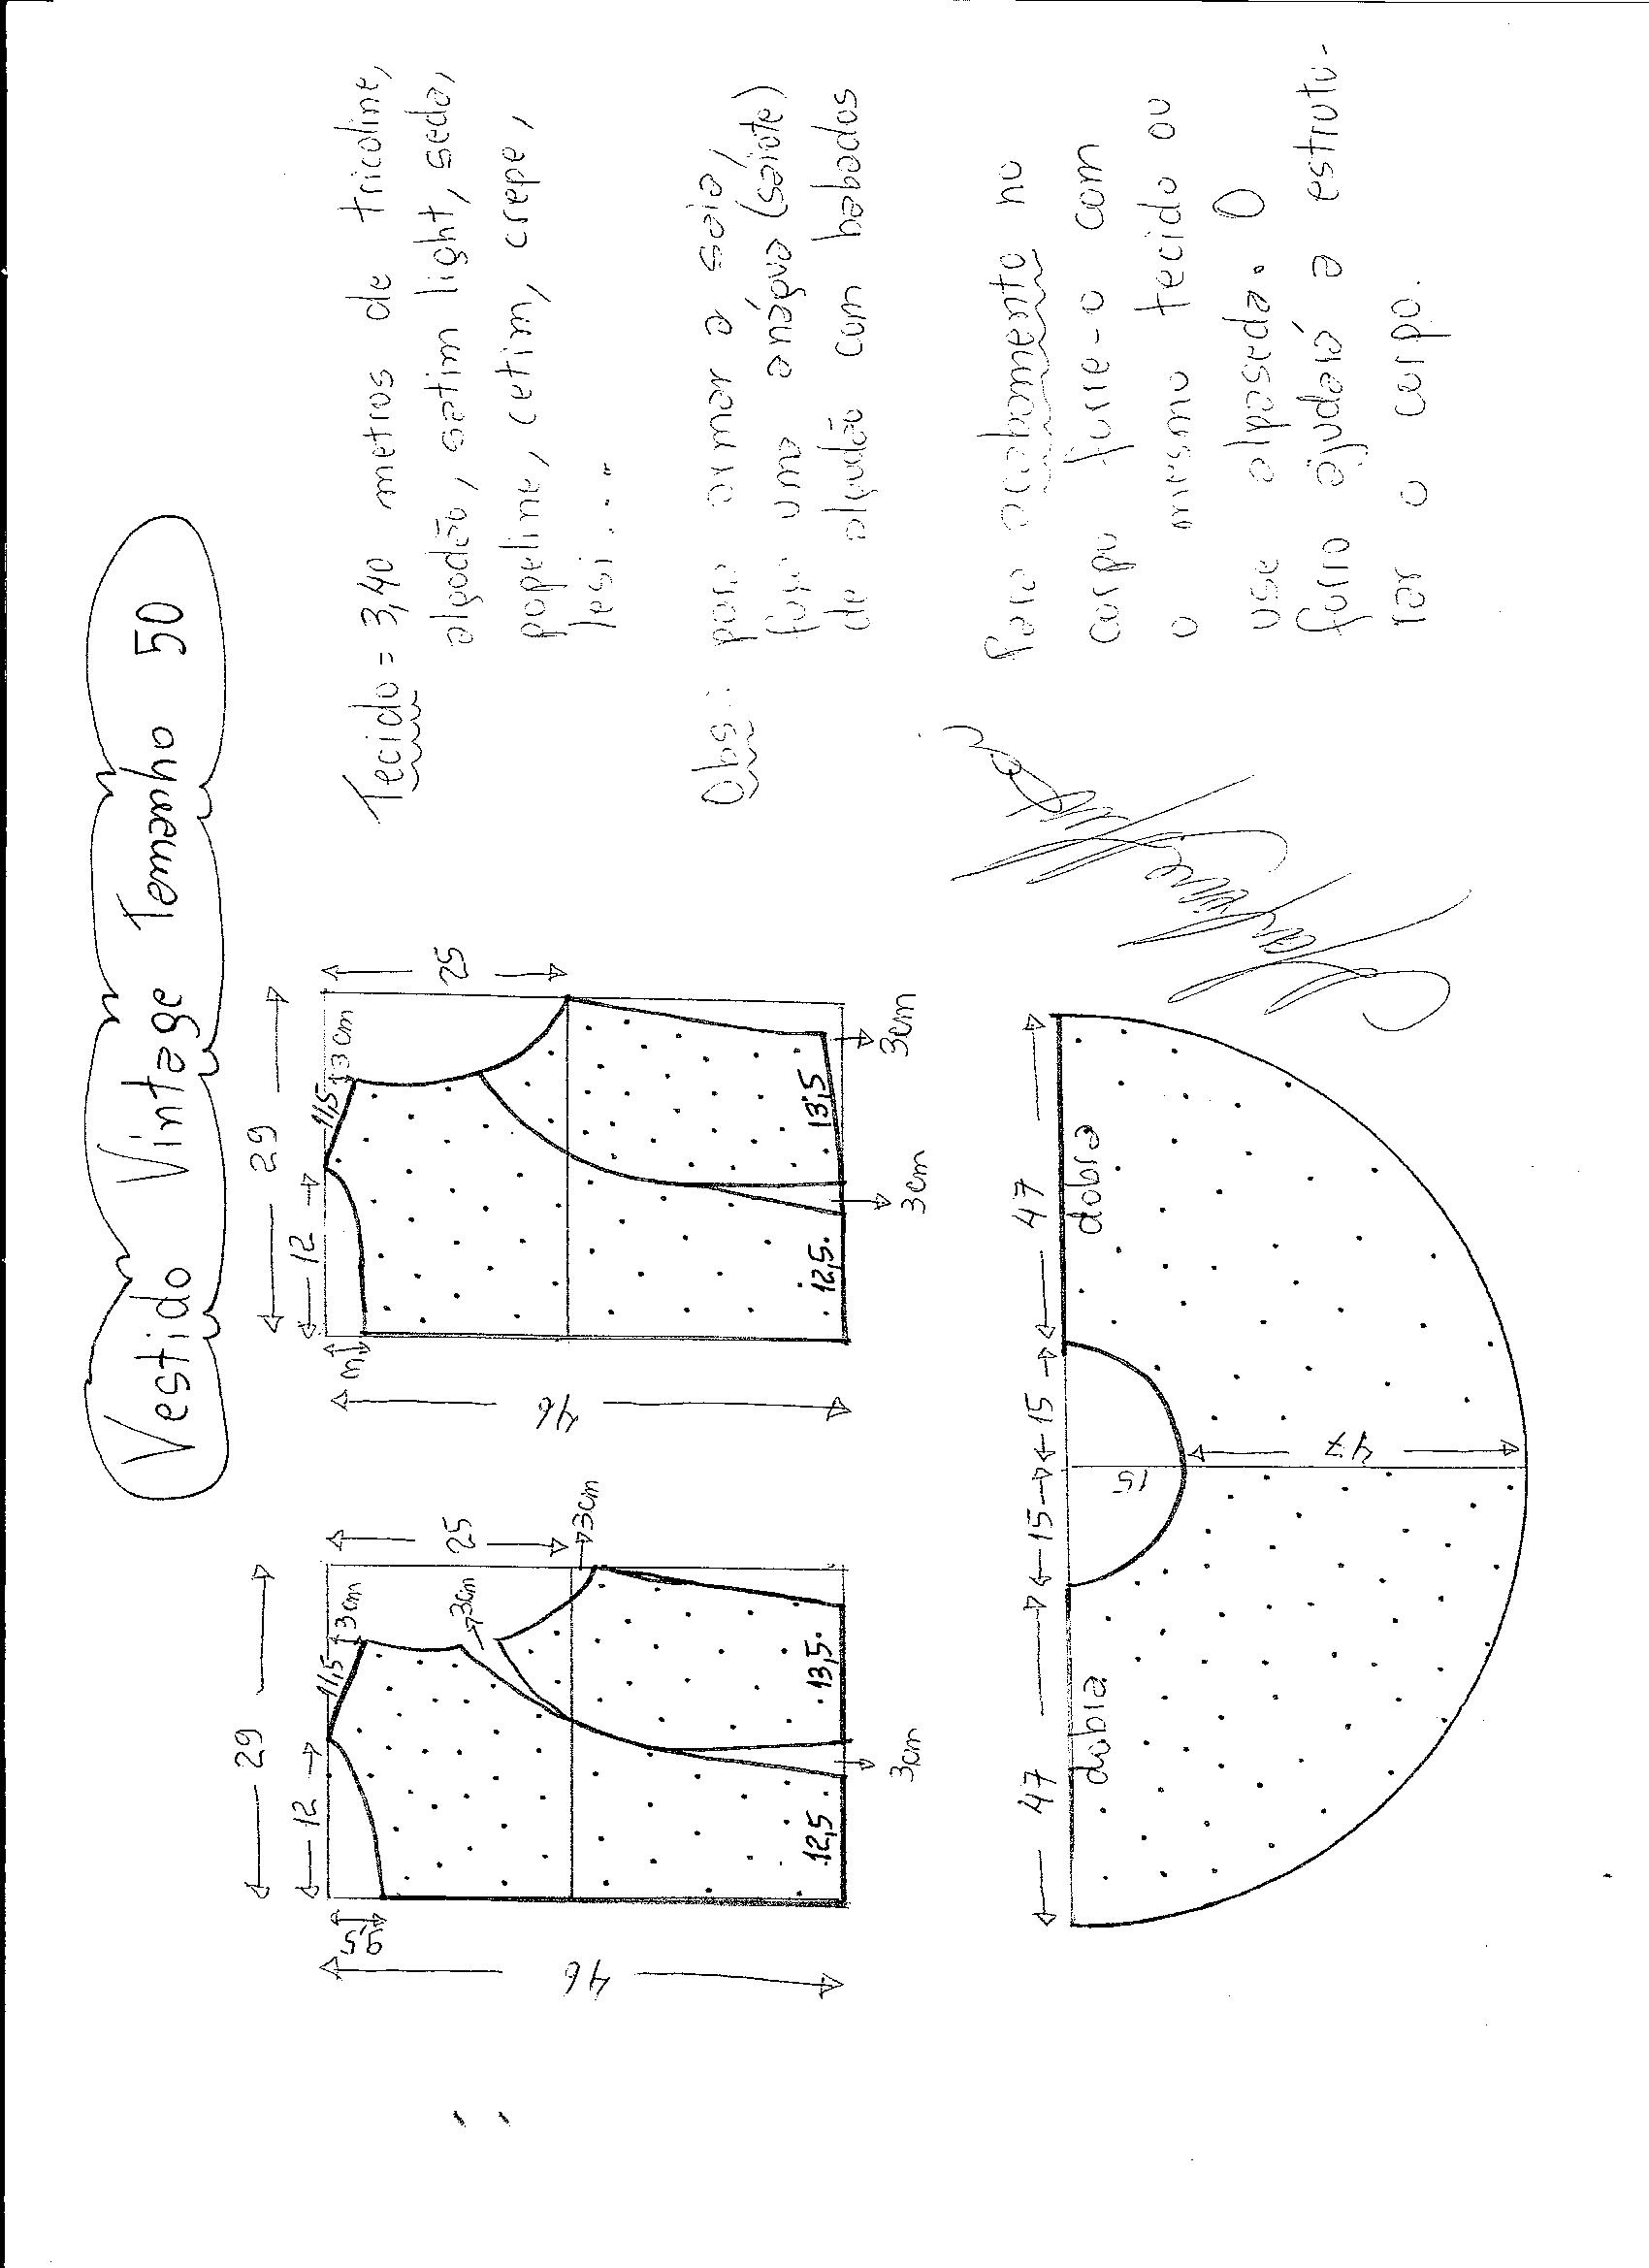 Vestido Vintage Tamanho 50
29
12
11,5
3cm
25
3cm
3cm
9,5
46
12,5
13,5
3cm
29
12
11,5
3cm
25
3
46
12,5
13,5
3cm
3cm
Tecido = 3,40 metros de tricoline,
algodão, satim light, seda,
popeline, cetim, crepe,
lesi...
Obs.: para armar a saia,
faça uma anágua (saiote)
de algodão com babados
47
15
15
47
dobra
dobra
15
47
Para acabamento no
corpo forre-o com
o mesmo tecido ou
use alpaseda. O
forro ajudará a estrutu-
rar o corpo.
Marlene